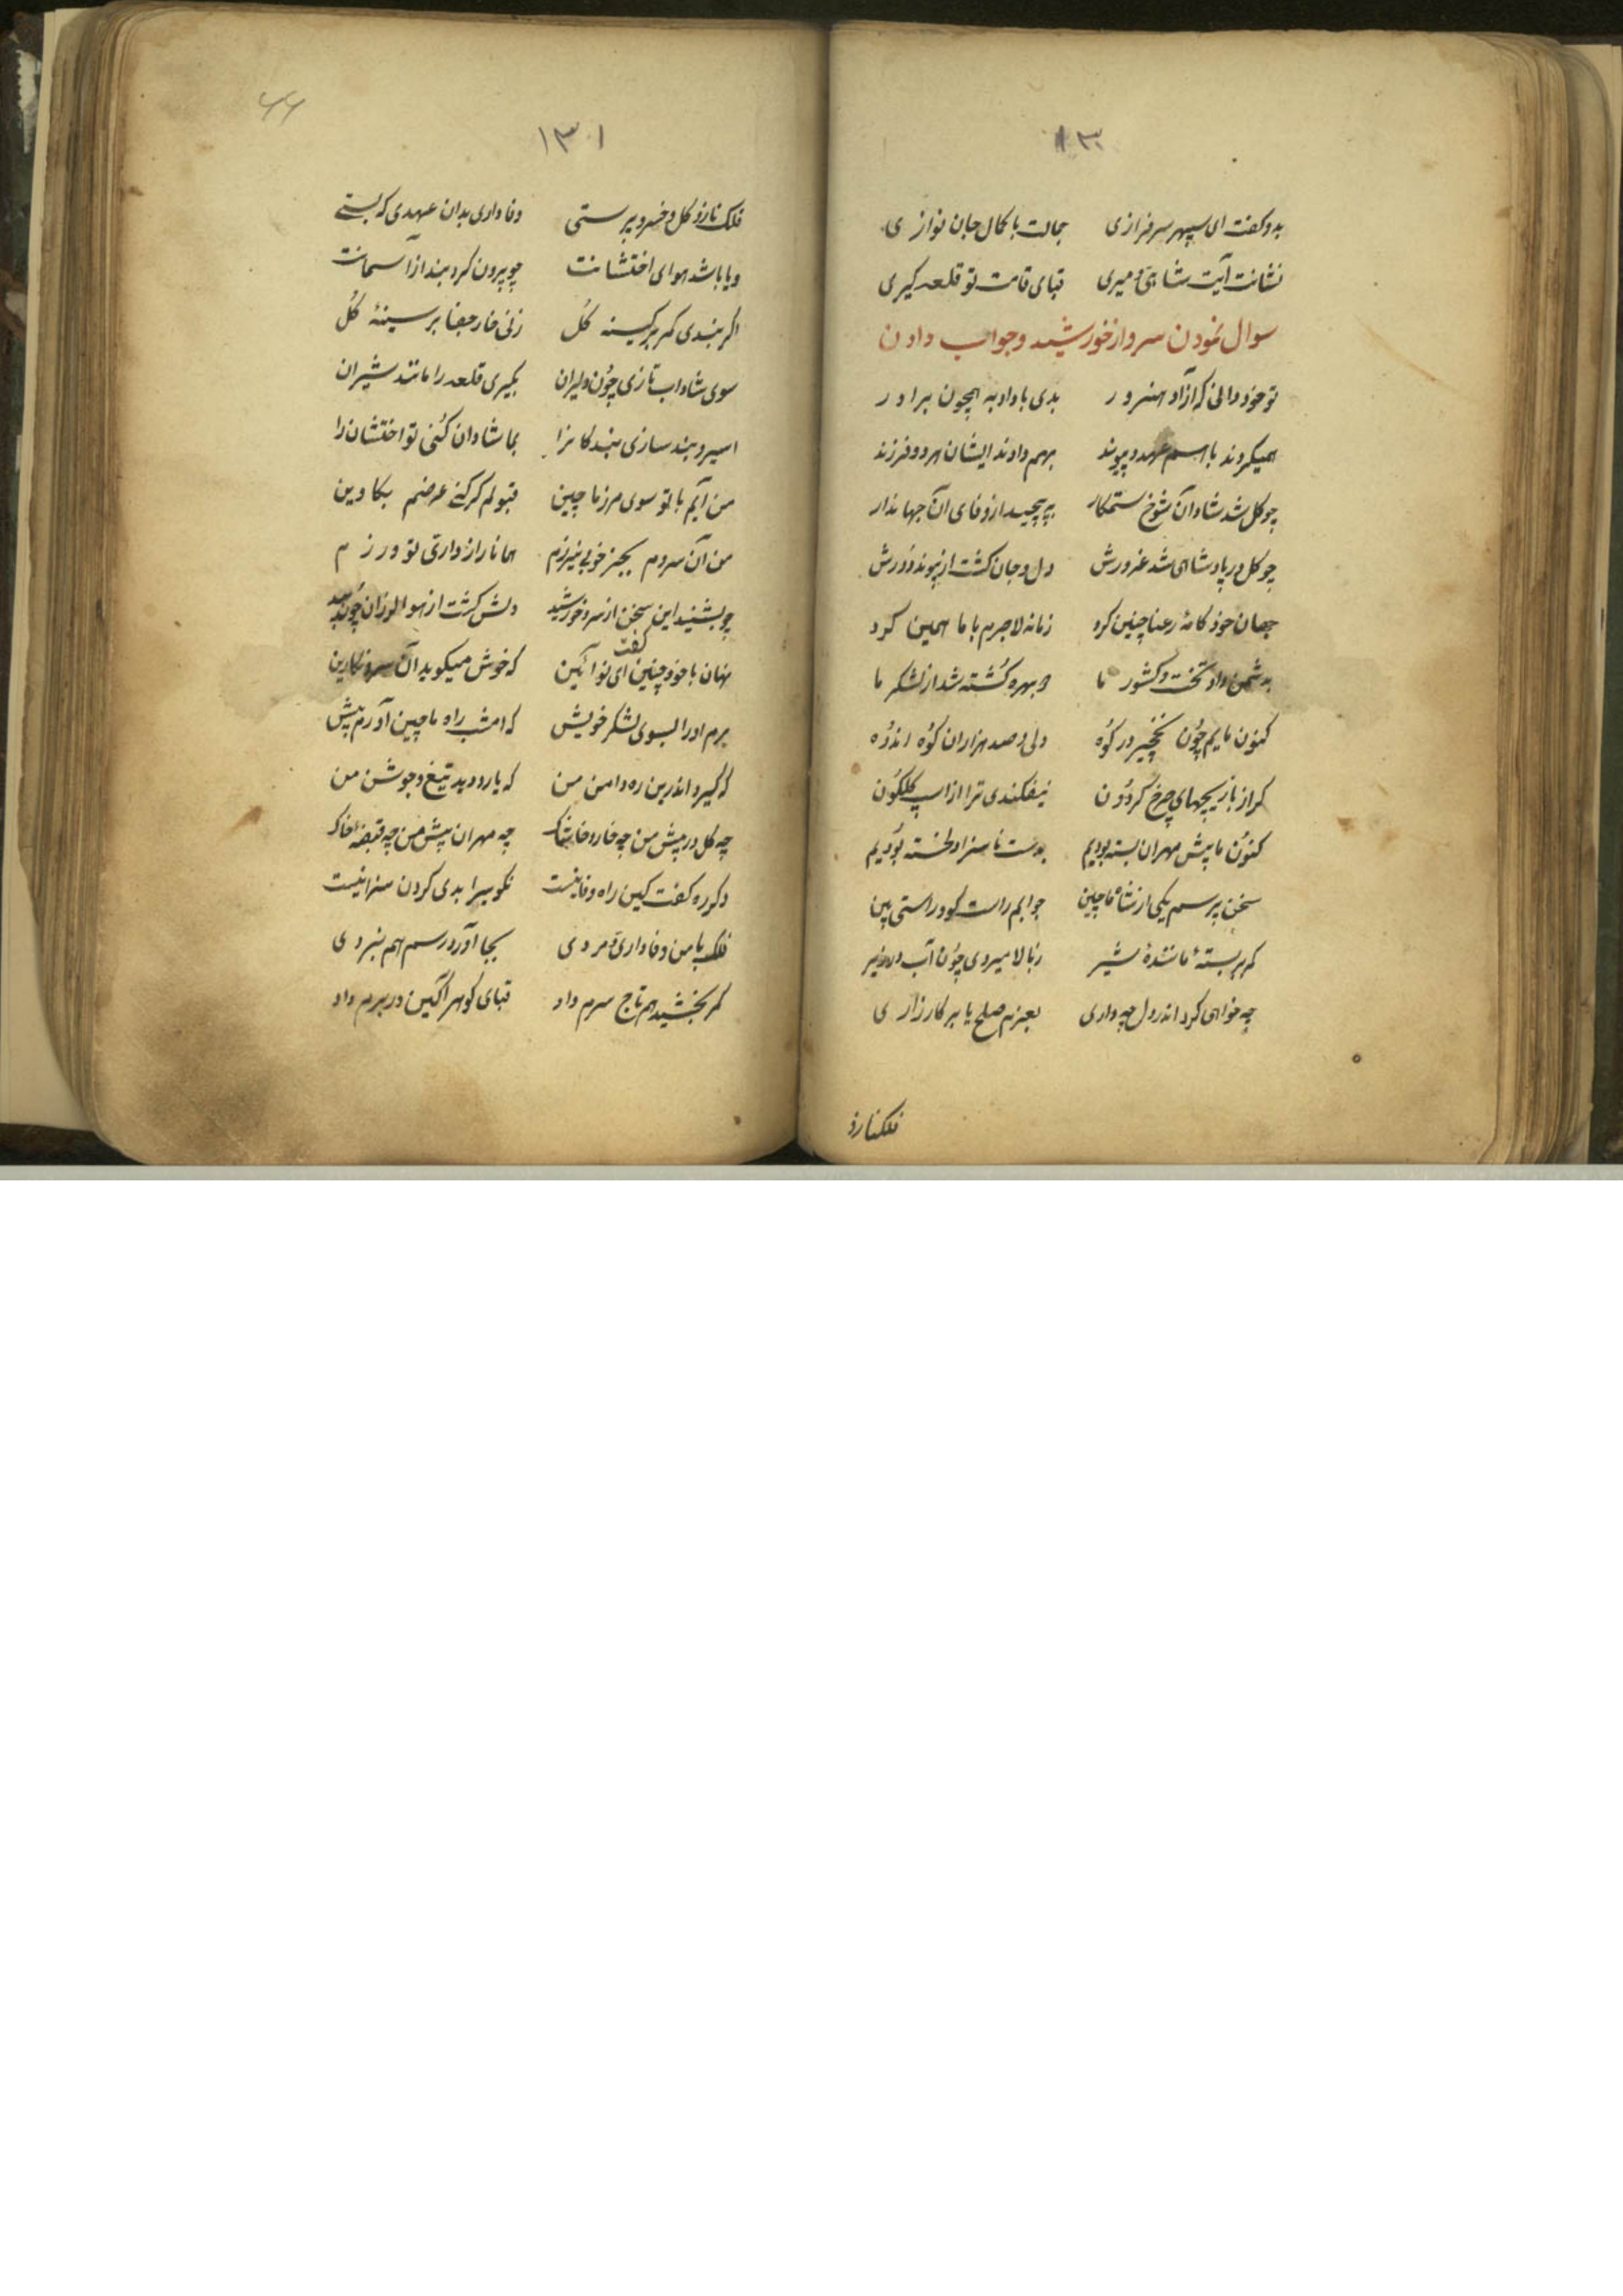 ۱۳۰
بدو گفت ای سپهر سرفرازی جمالت با کمال جان نوازی
نشانت آیت شاهی و میری قبای قامت تو قلعه گیری
سوال نمودن سرو از خورشید و جواب دادن
تو خود دانی که آزاد هنرور بدی با داد به همچون برادر
همیکردند باهم رسم عهد و پیوند بهم دادند ایشان هر دو فرزند
چو گل شد شادان شوخ ستمکار بپیچید از وفای آن جهاندار
چو گل در پادشاهی شد غرورش دل و جان گشت از پیوند دورش
جهان خود کامهٔ رعنا چنین کرد زمانه لاجرم با ما همین کرد
بدشمن داد تخت و کشور ما و بهره کشته شد از لشکر ما
کنون مایم چون نخچیر در کوه دلی و صد هزاران کوه اندوه
گر از بازیچهای چرخ گردون نیفکندی ترا از اسپ گلگون
کنون ما پیش مهران بسته بودیم بدست ناسزا دلخسته بودیم
سخن پرسم یکی از شاه ماچین جوابم راست گو در راستی بین
کمر بر بستهٔ مانندهٔ شیر ز بالا میروی چون آب در زیر
چه خواهی کرد اندر دل چه داری بعزم صلح یا بر کارزاری
فلکنازو
۶۶
۱۳۱
فلک نازو گل و خسرو پرستی وفاداری بدان عهدی که بستی
و یا باشد هوای اختشانت چو بیرون کرد بند از آسمانت
اگر بندی کمر بر کینه گل زنی خار جفا بر سینهٔ گل
سوی شاداب تازی چون دلیران بگیری قلعه را مانند شیران
اسیر و بند سازی بندکانرا بما شادان کنی تو اختشان را
من آیم با تو سوی مرز ماچین قبولم گر کنی عرضم بکاوین
من آن سروم بجز خوبی نیرزم همانا راز داری تو ورزم
چو بشنید این سخن از سرو خورشید دلش گشت از هوا لرزان چون بید
نهان با خود چنین گفت ای نو آئین که خوش میکوید آن سرو نکارین
برم او را بسوی لشکر خویش که امشب راه ماچین آورم پیش
که گیرد اندرین ره دامن من که یارد دید تیغ و جوشن من
چه گل در پیش من چه خار و خاشاک چه مهران پیش من چه قبضهٔ خاک
دکرره گفت کین راه وفا نیست نکو سیرا بدی کردن سزا نیست
فلک با من وفاداری و مردی بجا آورد رسم هم نبردی
کمر بخشید هم تاج سرم داد قبای گوهر آگین در برم داد